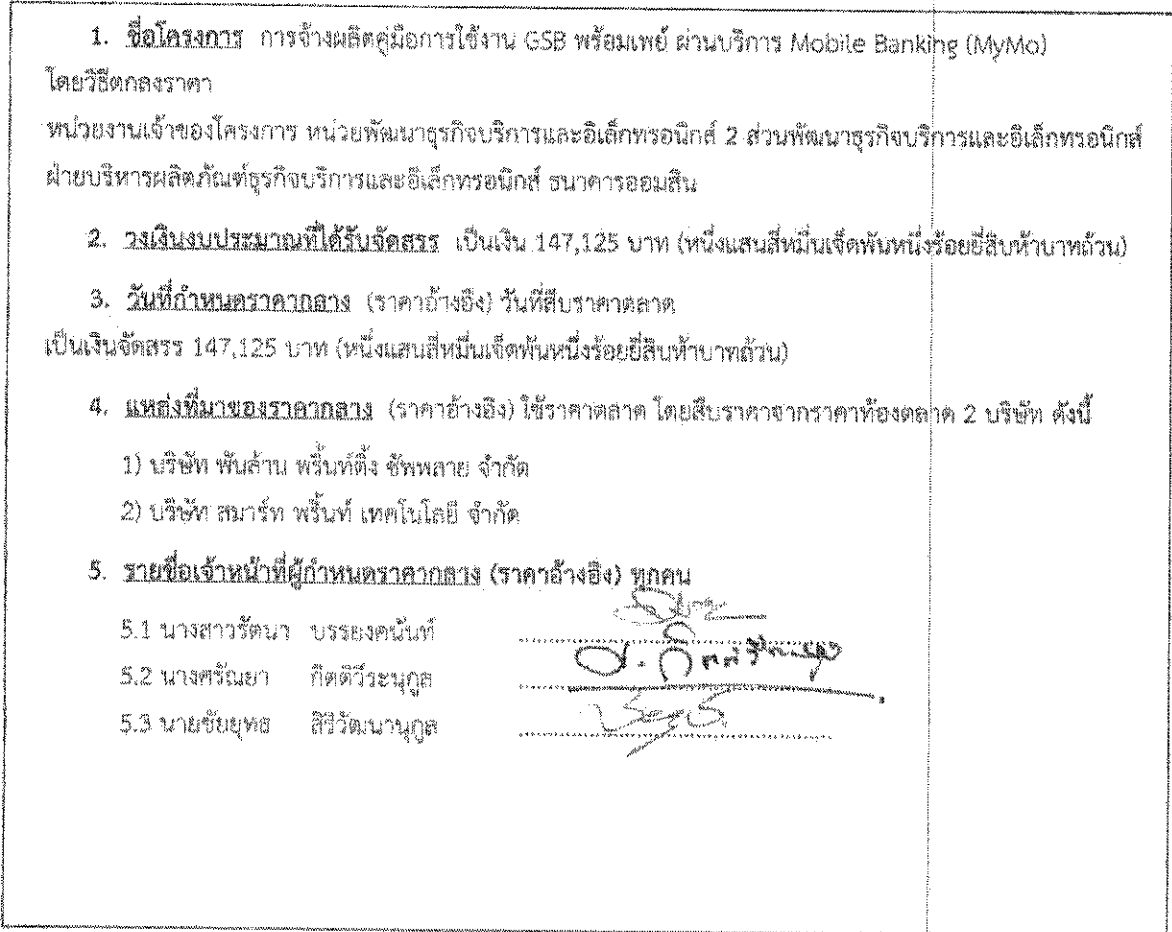 1. ชื่อโครงการ การจ้างผลิตคู่มือการใช้งาน GSB พร้อมเพย์ ผ่านบริการ Mobile Banking (MyMo)
โดยวิธีตกลงราคา
หน่วยงานเจ้าของโครงการ หน่วยพัฒนาธุรกิจบริการและอิเล็กทรอนิกส์ 2 ส่วนพัฒนาธุรกิจบริการและอิเล็กทรอนิกส์
ฝ่ายบริหารผลิตภัณฑ์ธุรกิจบริการและอิเล็กทรอนิกส์ ธนาคารออมสิน
2. วงเงินงบประมาณที่ได้รับจัดสรร เป็นเงิน 147,125 บาท (หนึ่งแสนสี่หมื่นเจ็ดพันหนึ่งร้อยยี่สิบห้าบาทถ้วน)
3. วันที่กำหนดราคากลาง (ราคาอ้างอิง) วันที่สืบราคาตลาด
เป็นเงินจัดสรร 147,125 บาท (หนึ่งแสนสี่หมื่นเจ็ดพันหนึ่งร้อยยี่สิบห้าบาทถ้วน)
4. แหล่งที่มาของราคากลาง (ราคาอ้างอิง) ใช้ราคาตลาด โดยสืบราคาจากราคาท้องตลาด 2 บริษัท ดังนี้
1) บริษัท พันล้าน พริ้นท์ติ้ง ซัพพลาย จำกัด
2) บริษัท สมาร์ท พริ้นท์ เทคโนโลยี จำกัด
5. รายชื่อเจ้าหน้าที่ผู้กำหนดราคากลาง (ราคาอ้างอิง) ทุกคน
5.1 นางสาวรัตนา บรรยงคนันท์
5.2 นางศรัณยา กิตติวีระนุกูล
5.3 นายชัยยุทธ สิริวัฒนานุกูล